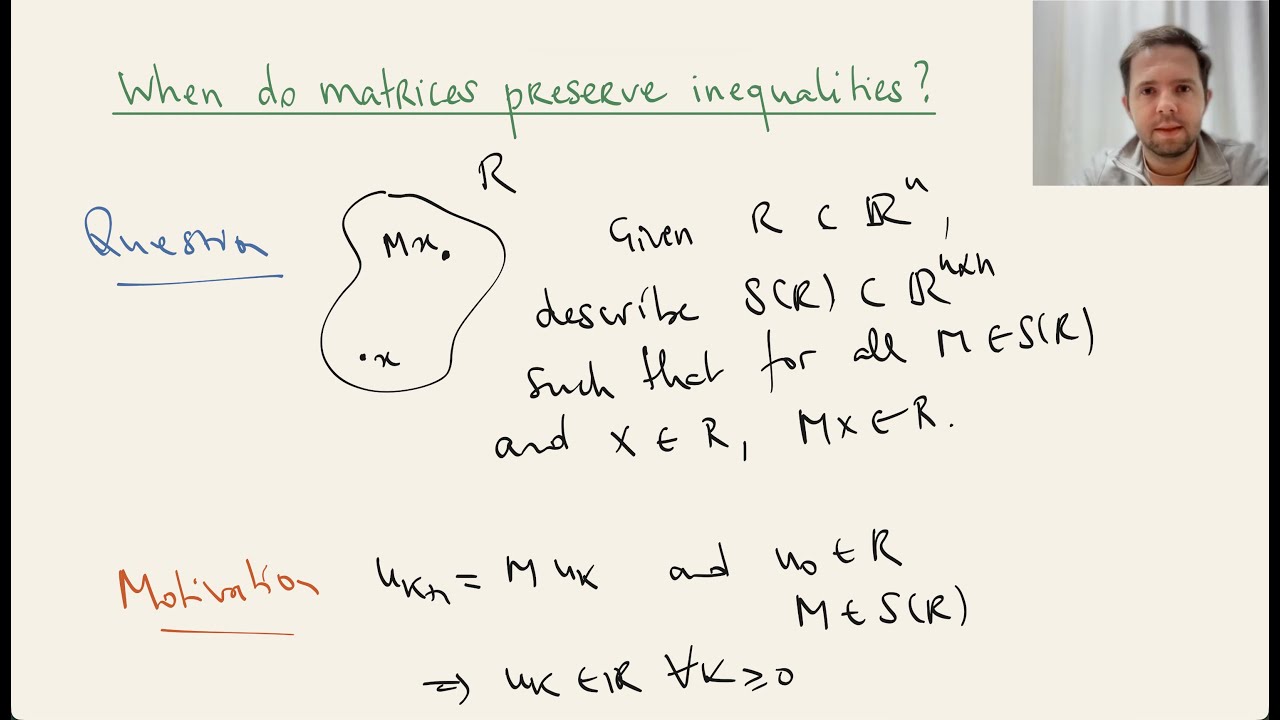 When do matrices preserve inequalities?
R
Question
Mx
x
Given R ⊂ ℝⁿ,
describe S(R) ⊂ ℝⁿˣⁿ
such that for all M ∈ S(R)
and x ∈ R, Mx ∈ R.
Motivation
uₖ₊₁ = M uₖ and u₀ ∈ R
M ∈ S(R)
⇒ uₖ ∈ R ∀k ≥ 0